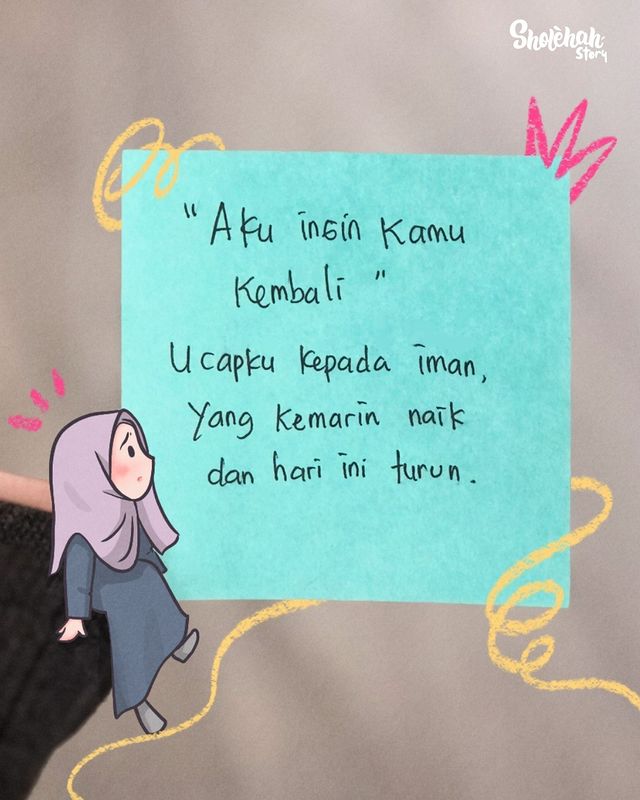 Sholehah
Story
"Aku ingin kamu
kembali"
Ucapku kepada iman,
Yang kemarin naik
dan hari ini turun.